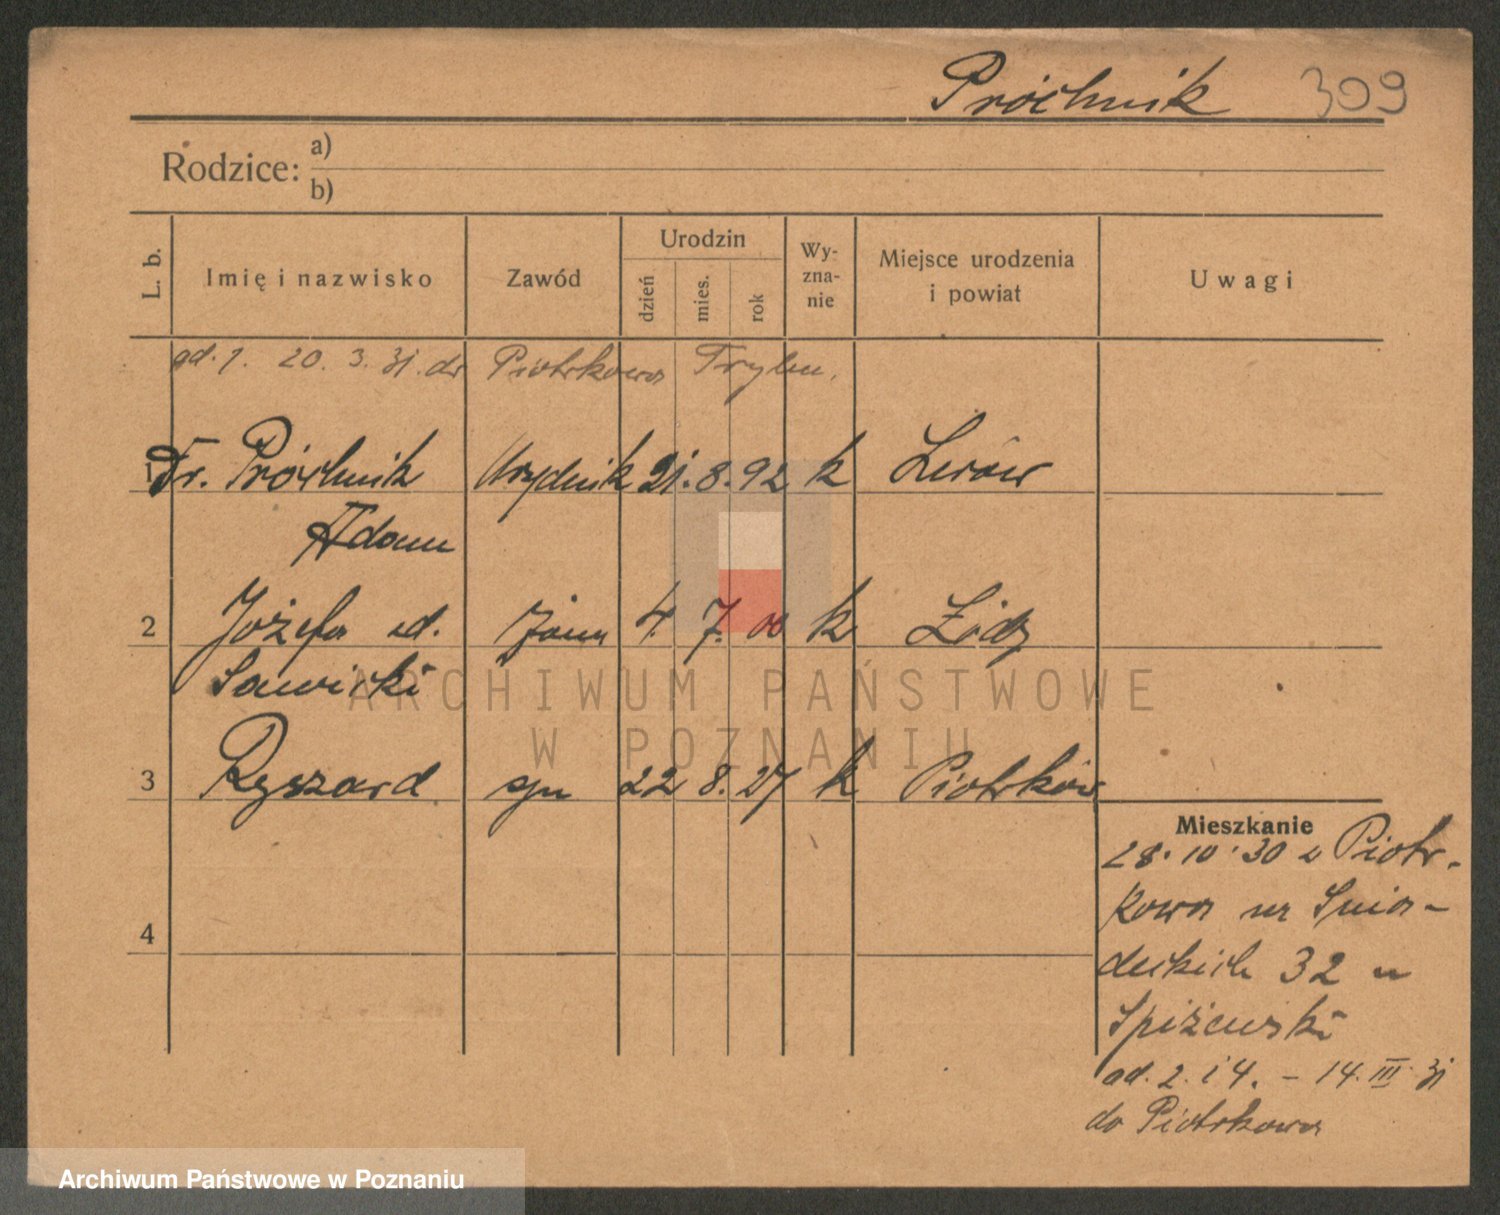 Próchnik 309
Rodzice: a)
b)
L. b. Imię i nazwisko Zawód Urodzin dzień mies. rok Wy-zna-nie Miejsce urodzenia i powiat Uwagi
ad. 1. 20. 3. 31. do Piotrkowa Trybu.
1 Dr. Próchnik Urzędnik 21. 8. 92 k Lwów
Adam
2 Józefa żona 4. 7. 00 k Łódz
Sawicki
3 Ryszard syn 22 8. 27 k Piotrków
4
Mieszkanie
28. 10. 30 z Piotr-
kowa Snia-
deckich 32 u
Spiżewski
ad. 2. i 4. - 14. III. 31
do Piotrkowa
ARCHIWUM PAŃSTWOWE
W POZNANIU
Archiwum Państwowe w Poznaniu